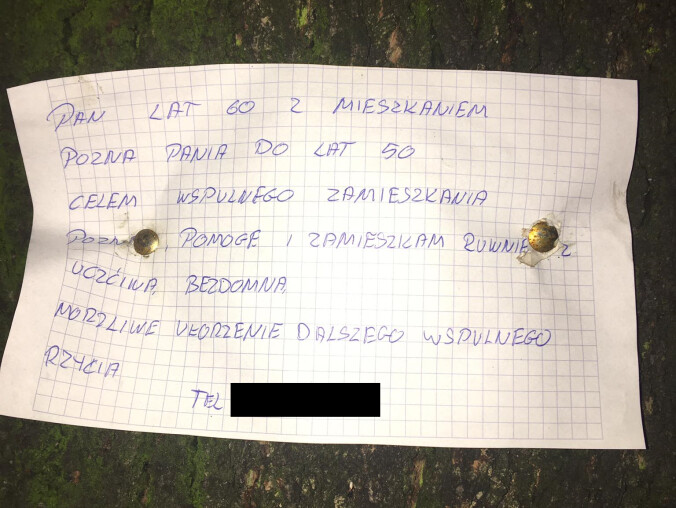 PAN LAT 60 Z MIESZKANIEM
POZNA PANIA DO LAT 50
CELEM WSPULNEGO ZAMIESZKANIA
POMOGE I ZAMIESZKAM
UCZĆIWĄ BEZDOMNĄ
MORZLIWE UŁORZENIE DALSZEGO WSPULNEGO
RZYCIA
TEL